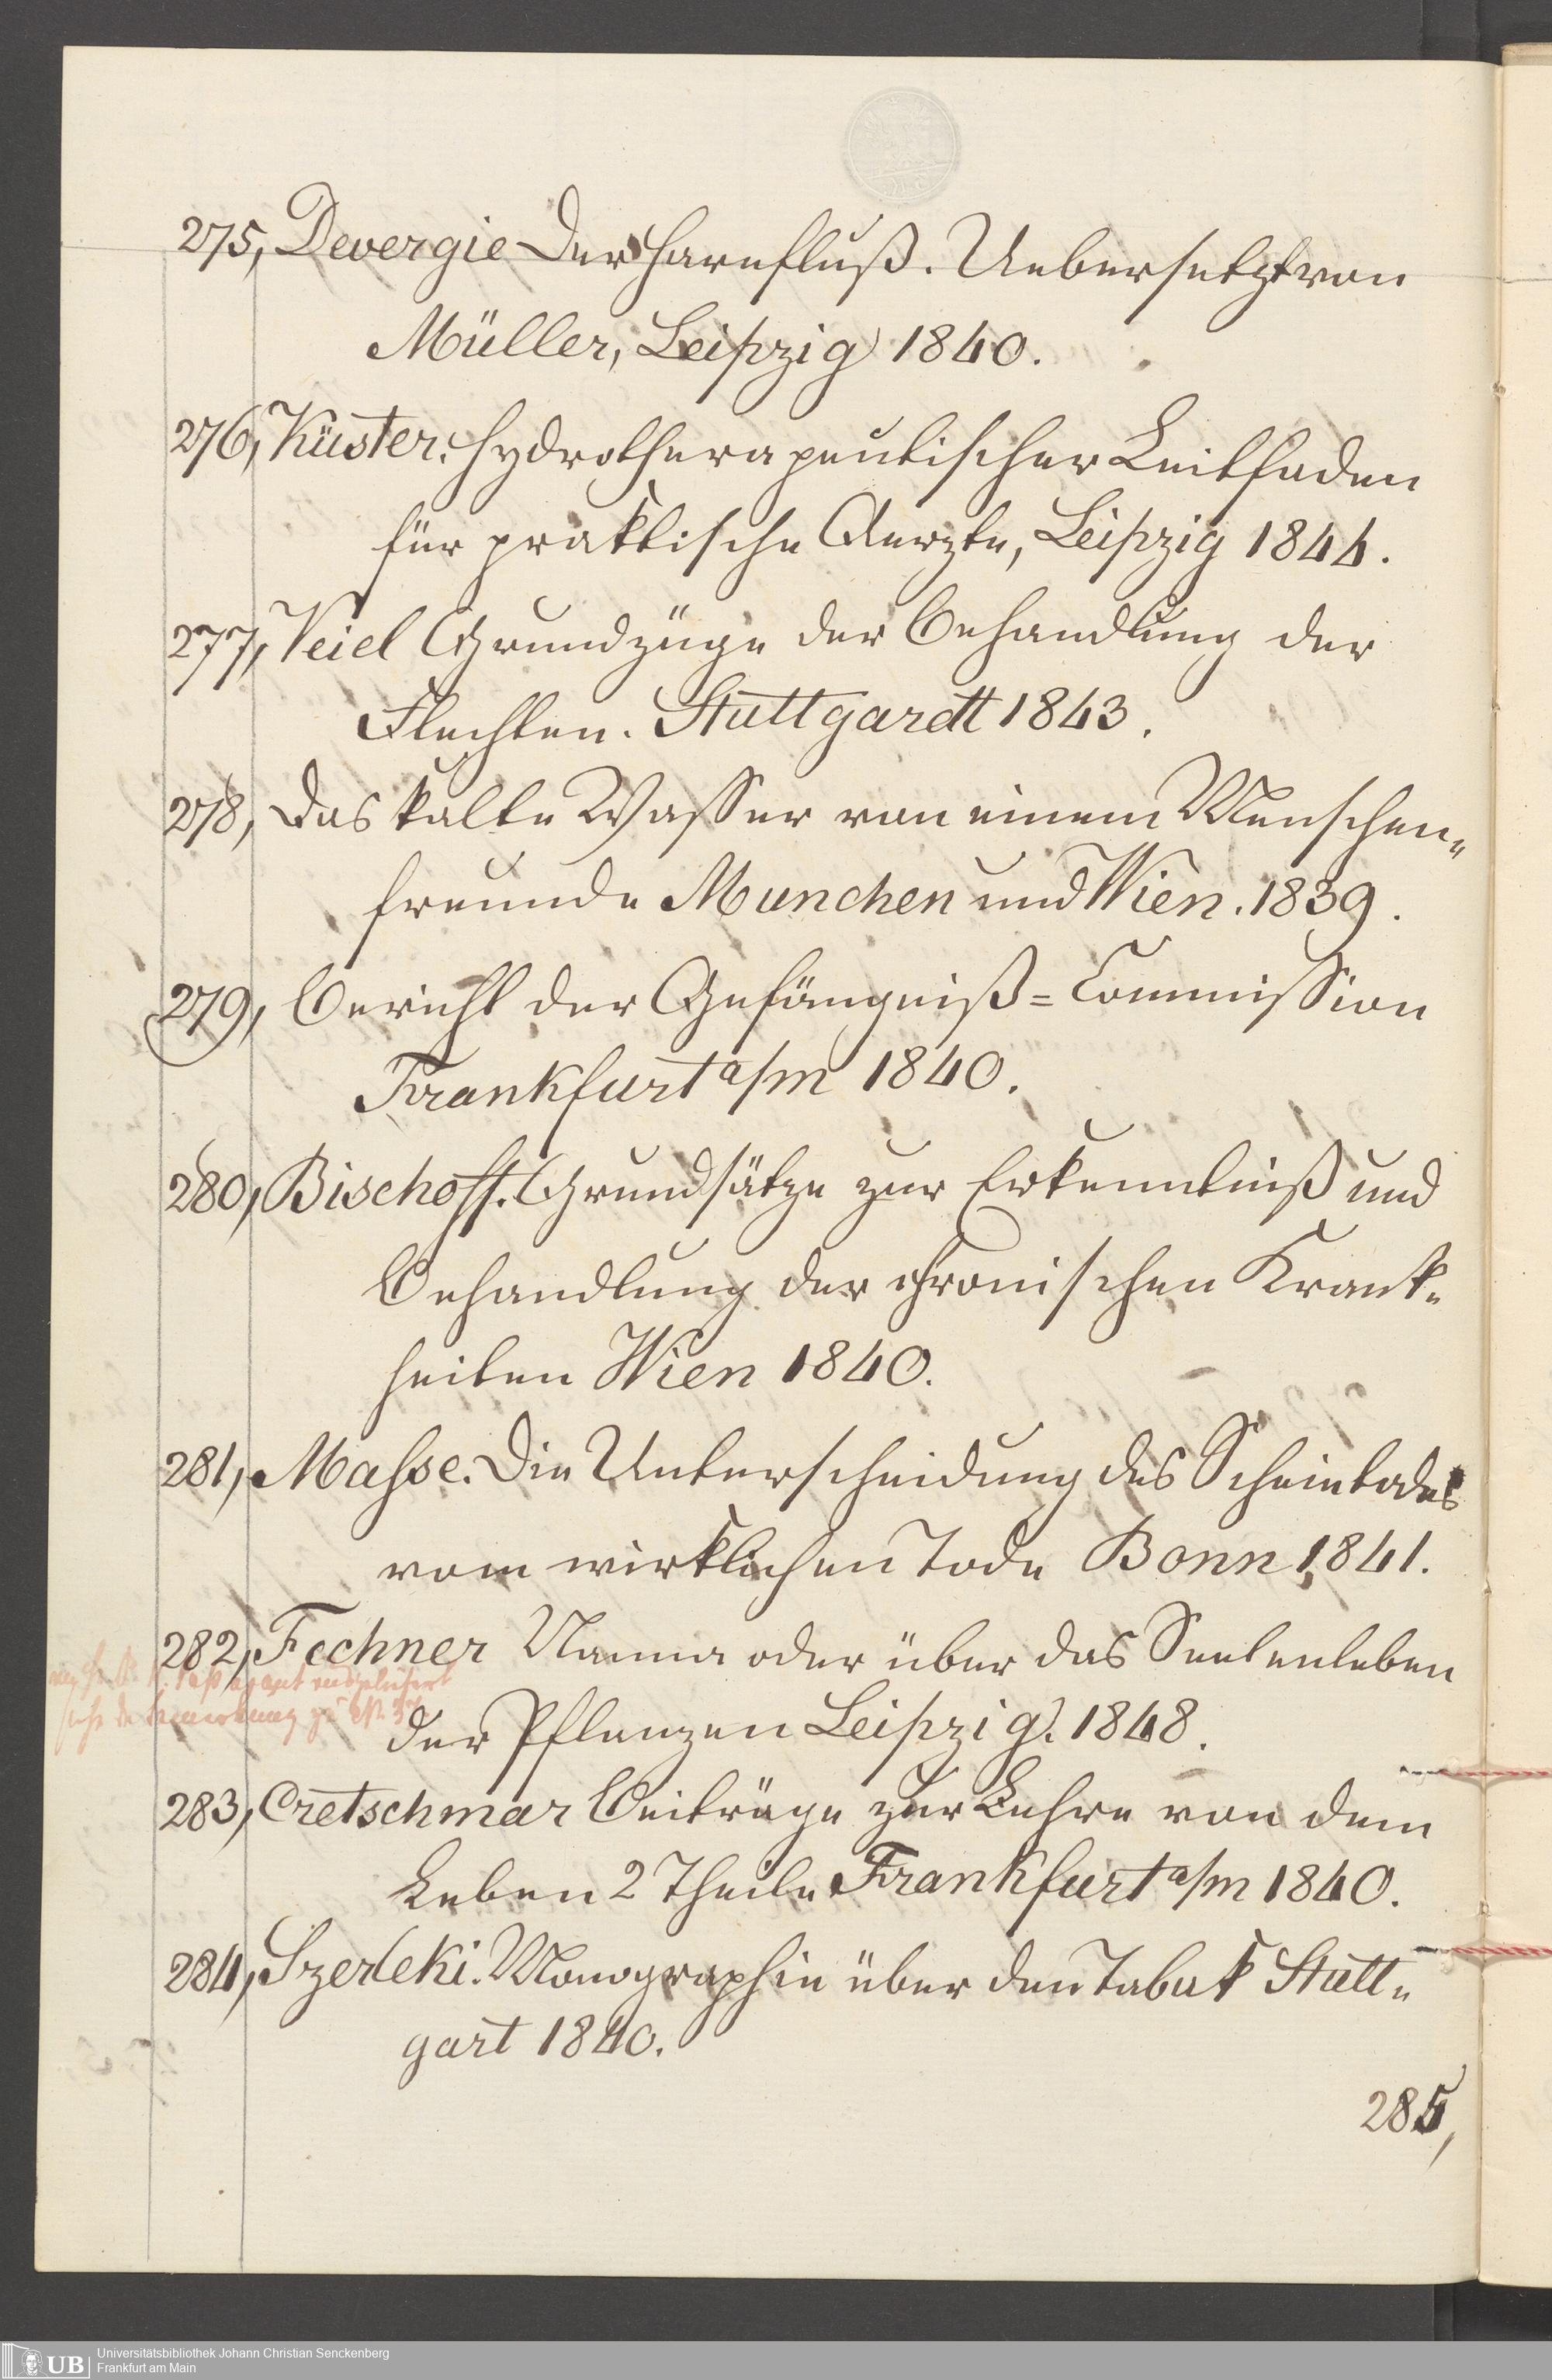 275, Devergie Der Harnfluß. Uebersetzt von
Müller, Leipzig 1840.
276, Küster. Hydrotherapeutischer Leitfaden
für praktische Aerzte, Leipzig 1844.
277, Veiel Grundzüge der Behandlung der
Flechten. Stuttgardt 1843.
278, Das kalte Wasser von einem Menschen„
freunde Munchen und Wien. 1839.
279, Bericht der Gefängniß=Commission
Frankfurt a/m 1840.
280, Bischoff. Grundsätze zur Erkenntniß und
Behandlung der chronischen Krank„
heiten Wien 1840.
281, Masse. Die Unterscheidung des Scheintodes
vom wirklichen Tode Bonn 1841.
282, Fechner Nanna oder über das Seelenleben
der Pflanzen Leipzig. 1848.
283, Cretschmar Beiträge zur Lehre von dem
Leben 2 Theile Frankfurt a/m 1840.
284, Szerleki. Monographie über den Tabak Stutt„
gart 1840.
285,
UB Universitätsbibliothek Johann Christian Senckenberg
Frankfurt am Main